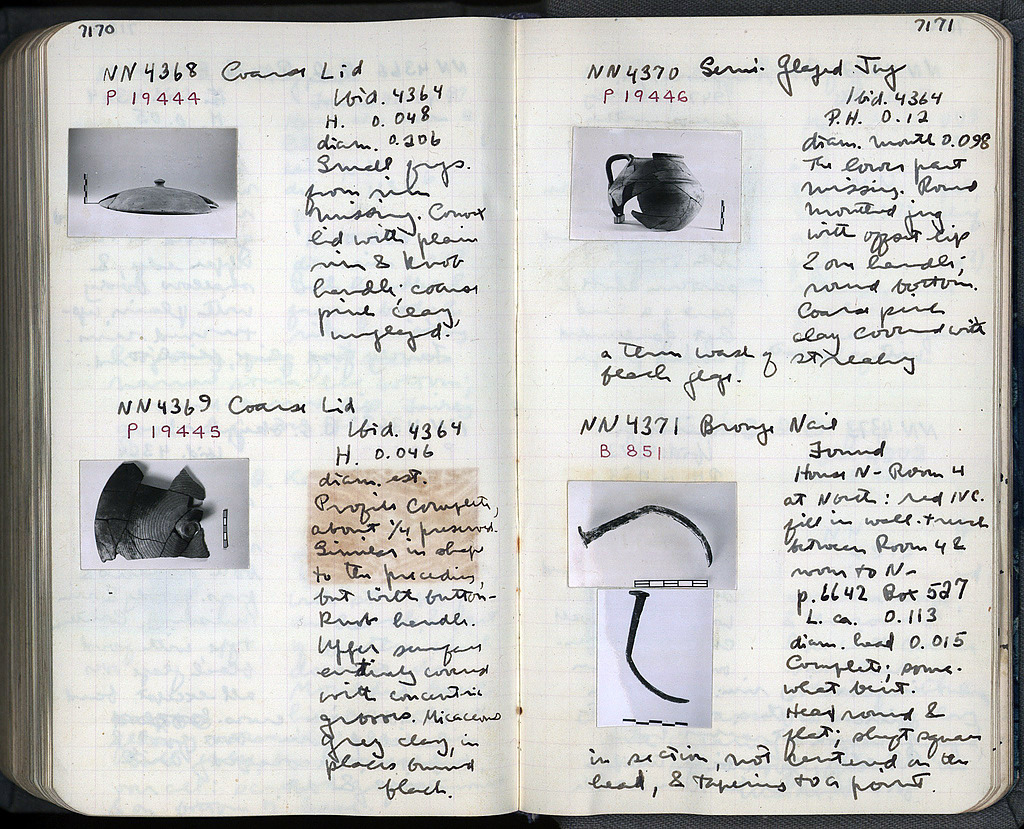 7170
NN 4368 Coarse Lid
P 19444
Ibid. 4364
H. 0.048
diam. 0.206
Small frgs.
from rim
missing. Convex
lid with plain
rim & knob
handle; coarse
pink clay,
unglazed.
NN 4369 Coarse Lid
P 19445
Ibid. 4364
H. 0.046
diam. est.
Profile Complete,
about 1/4 preserved.
Similar in shape
to the preceding,
but with button-
knob handle.
Upper surface
entirely covered
with concentric
grooves. Micaceous
grey clay, in
places burned
black.
7171
NN 4370 Semi-Glazed Jug
P 19446
Ibid. 4364
P.H. 0.12
diam. mouth 0.098
The lower part
missing. Round
mouthed jug
with offset lip
& one handle;
round bottom.
Coarse pink
clay covered with
a thin wash of streaky
black glaze.
NN 4371 Bronze Nail
B 851
Found
House N- Room 4
at North: red IVc.
fill in wall-trench
between Room 4 &
room to N-
p. 6642 Box 527
L. ca. 0.113
diam. head 0.015
Complete; some-
what bent.
Head round &
flat; shaft square
in section, not centered on the
head, & tapering to a point.